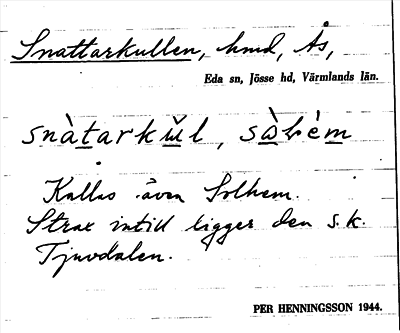 Snattarkullen, hmd, Ås,
Eda sn, Jösse hd, Värmlands län.
snàtarkŭl, sòlèm
Kallas även Solhem.
Strax intill ligger den s.k.
Tjuvdalen.
PER HENNINGSSON 1944.